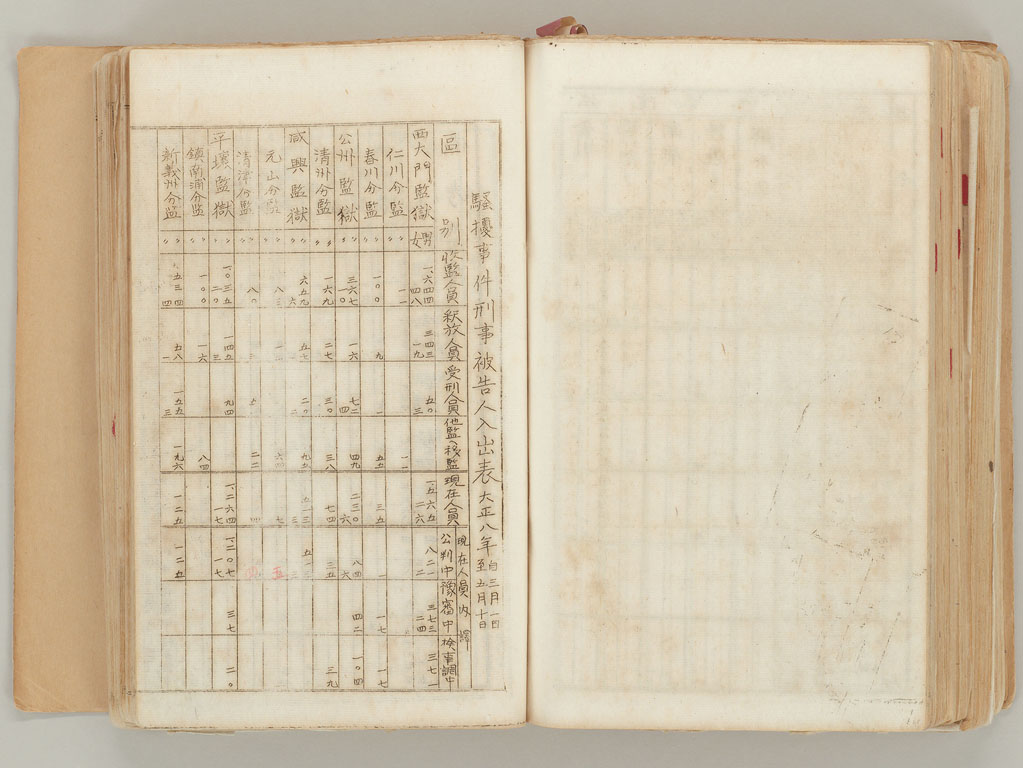 騷擾事件刑事被告人入出表 大正八年 自三月一日 至五月十日
區別 收監人員 釈放人員 受刑人員 他監へ移監 現在人員 現在人員內譯 公判中 豫審中 檢事調中
西大門監獄 男 一、六四四 三四三 五〇 一、五六五 八二一 三七三 三七一
女 四八 一九 三 二六 二 二四
仁川分監 〃 〃 一一 一一
春川分監 〃 〃 一〇〇 九 一 五五 三五 一 一七 一七
公州監獄 〃 三六七 一六 七二 四九 二三〇 八四 四二 一〇四
〃 一〇 四 六 六
清州分監 〃 〃 一六九 二七 三〇 三八 七四 三五 三九
咸興監獄 〃 六五九 五七 二〇 九五
〃 六
元山分監 〃 〃 八三 七 五
清津分監 〃 〃 八〇 三 二二 四
平壤監獄 〃 一、〇三五 一四五 九四 一、二六四 一、二〇七 三七 二〇
〃 二〇 三 一七 一七
鎮南浦分監 〃 〃 一〇〇 一六 八四
新義州分監 〃 五三四 五八 一五五 一九六 一二五 一二五
〃 四 一 三